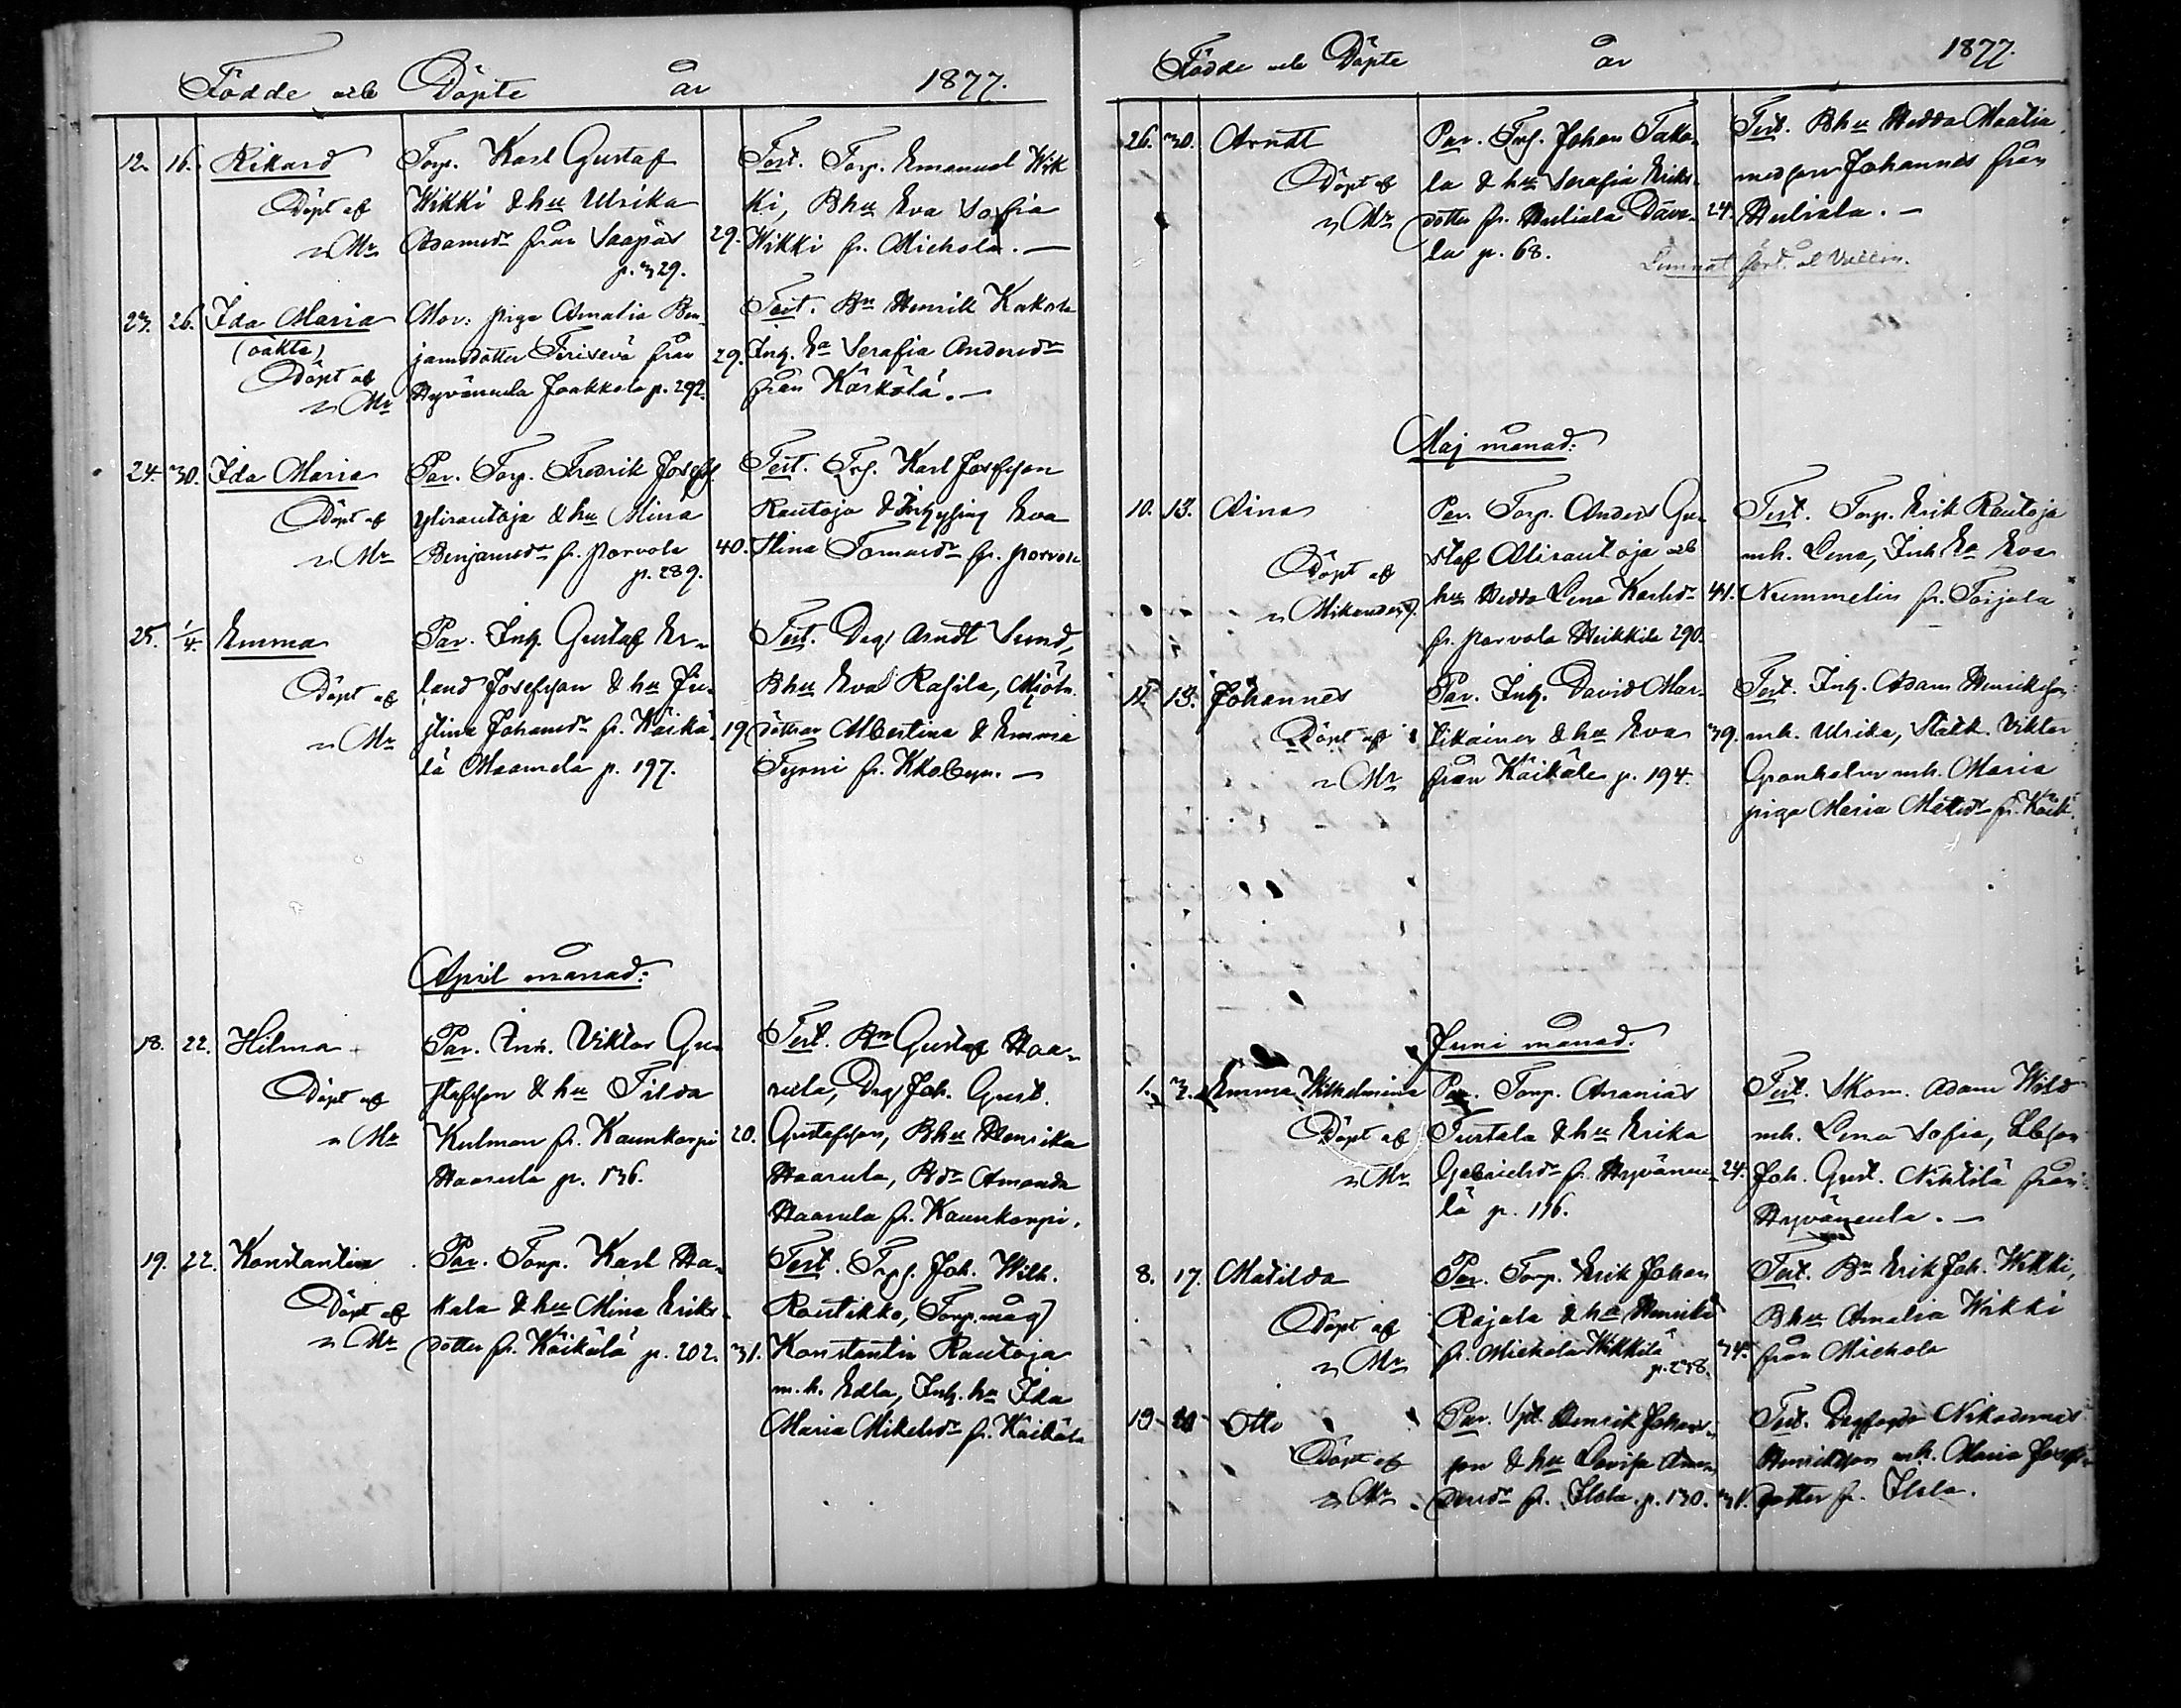 Födde och Döpte år 1877.
12. 16. Rikard
Döpt af
n Mr
Torp. Karl Gustaf
Wikki & hu Ulrika
Adamsdr från Saapas
p. 329.
29.
Test. Torp. Emanuel Wik
ki, Bhu Eva Sofia
Wikki fr. Michola. —
23. 26. Ida Maria
(oäkta)
Döpt af
n Mr
Mor: piga Amalia Ben-
jamsdotter Terisevä från
Hyvänula Jaakkola p. 292.
29.
Test. Bn Henrik Kakola
Inh. ha Serafia Andersdr
från Kärkölä. —
24. 30. Ida Maria
Döpt af
n Mr
Par. Torp. Fredrik Josefs.
Ylirautoja & hu Mina
Benjamsdr fr. Porvola
p. 289.
40.
Test. Trp. Karl Josefsson
Rautoja & Eva
Stina Tomasdr fr. Porvola
25. 1/4. Emma
Döpt af
n Mr
Par. Inh. Gustaf Er-
land Josefsson & hu Ju-
stina Johansdr fr. Käikä-
lä Maamela p. 197.
19.
Test. Drg Arndt Sund,
Bhu Eva Rasila, Mjöln.
döttrar Albertina & Emma
Tyrni fr. Kkobyn. —
April månad:
18. 22. Hilma
Döpt af
n Mr
Par. Inh. Viktor Gu-
stafsson & hu Tilda
Kulman fr. Kaunkorpi
Haarula p. 136.
20.
Test. Bn Gustaf Haa-
rula, Drg Joh. Gust.
Gustafsson, Bhu Henrika
Haarula, Bdr Amanda
Haarula fr. Kaunkorpi.
19. 22. Konstantin
Döpt af
n Mr
Par. Torp. Karl Ha-
kala & hu Mina Eriks-
dotter fr. Käikälä p. 202.
31.
Test. Trps. Joh. Wilh.
Rautikko, Torp. måg
Konstantin Rautoja
m. h. Edla, Inh. hu Ida
Maria Mikelsdr fr. Käikälä
Födde och Döpte år 1877.
26. 30. Arndt
Döpt af
n Mr
Par. Trp. Johan Taka-
la & hu Serafia Eriks-
dotter fr. Huliala Dava-
la p. 68.
24.
Test. Bhu Hedda Maalia
med son Johannes från
Huliala. —
Maj månad:
10. 13. Aina
Döpt af
n Mikander.
Par. Torp. Anders Gu-
staf Alirautoja och
hu Hedda Lena Karlsdr
fr. Porvola Heikkilä 290.
41.
Test. Torp. Erik Rautoja
mh. Lena, Inh. ha Eva
Nummelin fr. Toijala
11. 13. Johannes
Döpt af
n Mr
Par. Inh. David Mar-
tikainen & hu Eva
från Käikälä p. 194.
39.
Test. Inh. Adam Henriksson
mh. Ulrika, Statk. Viktor
Granholm mh. Maria
piga Maria Mattsdr fr. Käik.
Juni månad.
1. 3. Emma Wilhelmina
Döpt af
n Mr
Par. Torp. Ananias
Turtala & hu Erika
Gabrielsdr fr. Hyvänu-
lä p. 116.
24.
Test. Skom. Adam Wild
mh. Lena Sofia,
Joh. Gust. Nikkilä från
Hyvänula. —
8. 17. Matilda
Döpt af
n Mr
Par. Torp. Erik Johan
Rajala & hu Henrika
fr. Michola Wikkilä
p. 258.
34.
Test. Bn Erik Joh. Wikki,
Bhu Amalia Wikki
från Michola
19. Otto
Döpt af
n Mr
Par. Henrik Johans-
son & hu Lovisa An-
dersdr fr. Ilola p. 130.
31.
Test. Nikodemus
Henriksson mh. Maria Josefs-
dotter fr. Ilola.